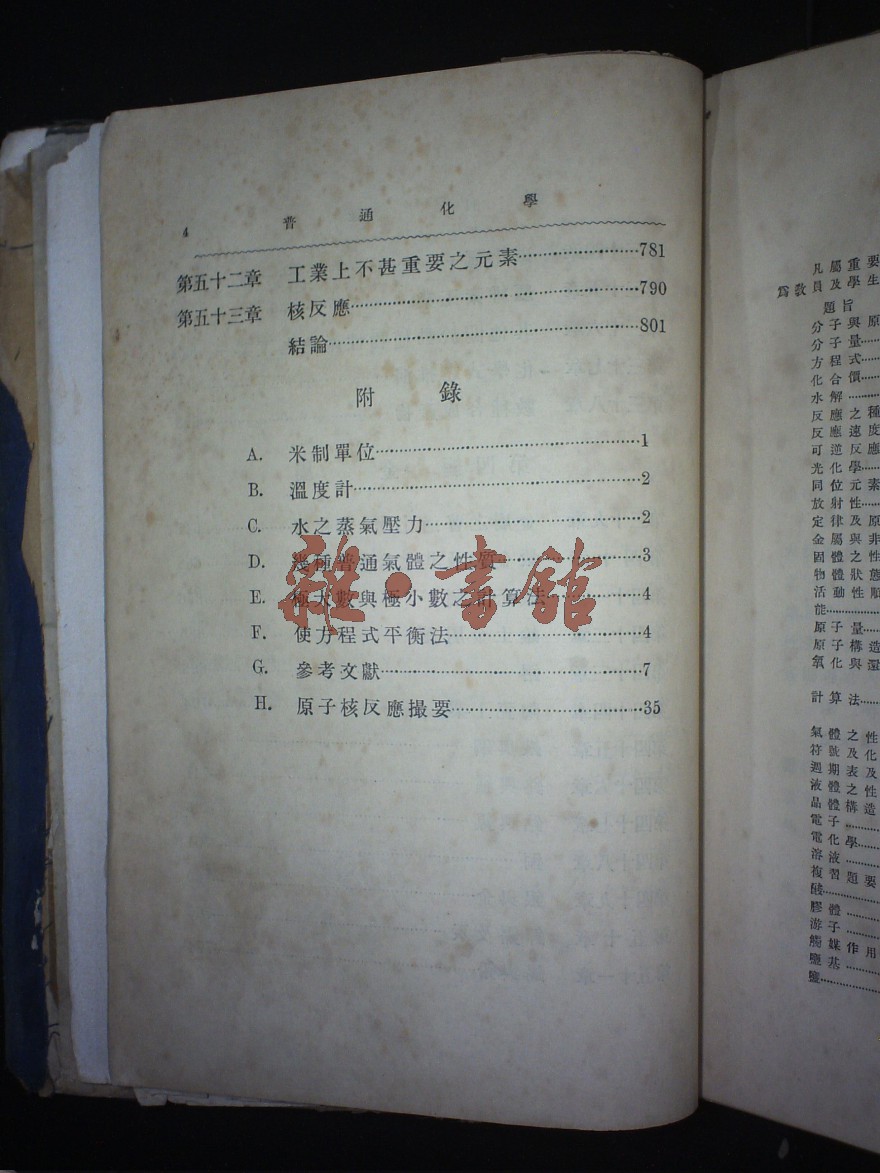 4 普通化學
第五十二章 工業上不甚重要之元素……………………781
第五十三章 核反應……………………790
結論……………………801
附錄
A. 米制單位……………………1
B. 溫度計……………………2
C. 水之蒸氣壓力……………………2
D. 幾種普通氣體之性質……………………3
E. 極大數與極小數之計算法……………………4
F. 使方程式平衡法……………………4
G. 參考文獻……………………7
H. 原子核反應撮要……………………35
雜·書館
凡屬重要
爲敎員及學生
題旨
分子與原
分子量……
方程式……
化合價……
水解……
反應之種
反應速度
可逆反應
光化學……
同位元素
放射性……
定律及原
金屬與非
固體之性
物體狀態
活動性順
能……
原子量……
原子構造
氧化與還
計算法……
氣體之性
符號及化
週期表及
液體之性
晶體構造
電子……
電化學……
溶液……
複習題要
酸……
膠體……
游子……
觸媒作用
鹽基……
鹽……